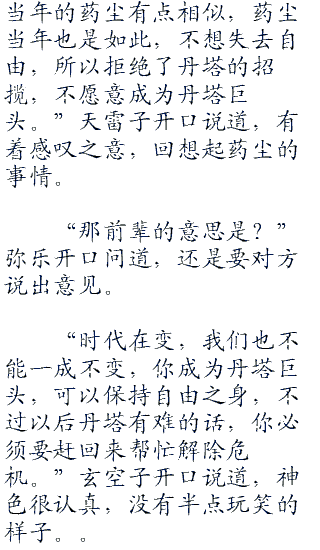 当年的药尘有点相似，药尘
当年也是如此，不想失去自
由，所以拒绝了丹塔的招
揽，不愿意成为丹塔巨
头。”天雷子开口说道，有
着感叹之意，回想起药尘的
事情。
“那前辈的意思是？”
弥乐开口问道，还是要对方
说出意见。
“时代在变，我们也不
能一成不变，你成为丹塔巨
头，可以保持自由之身，不
过以后丹塔有难的话，你必
须要赶回来帮忙解除危
机。”玄空子开口说道，神
色很认真，没有半点玩笑的
样子。。